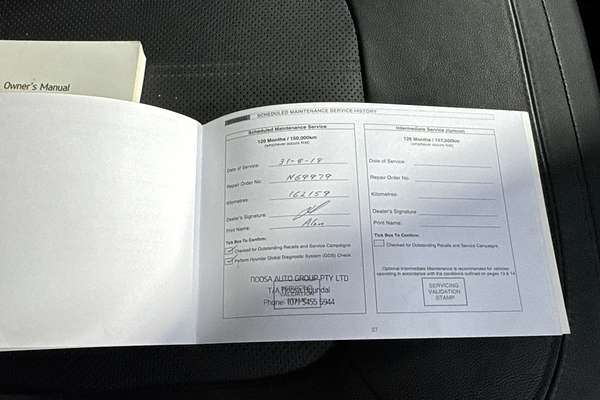 Owner's Manual
SCHEDULED MAINTENANCE SERVICE HISTORY
Scheduled Maintenance Service
120 Months / 150,000km
(whichever occurs first)
Date of Service: 31-8-19
Repair Order No. N69979
Kilometres: 162159
Dealer's Signature:
Print Name: Alan
Tick Box To Confirm:
Checked for Outstanding Recalls and Service Campaigns
Perform Hyundai Global Diagnostic System (GDS) Check
NOOSA AUTO GROUP PTY LTD
T/A Noosa Hyundai
VALIDATION
Phone: (07) 5455 5944
Intermediate Service (Optional)
(whichever occurs first)
Date of Service:
Repair Order No.
Kilometres:
Dealer's Signature
Print Name:
Tick Box To Confirm:
Checked for Outstanding Recalls and Service Campaigns.
Optional Intermediate Maintenance is recommended for vehicles
operating in accordance with the conditions outlined on pages 13 & 14
SERVICING
VALIDATION
STAMP
57